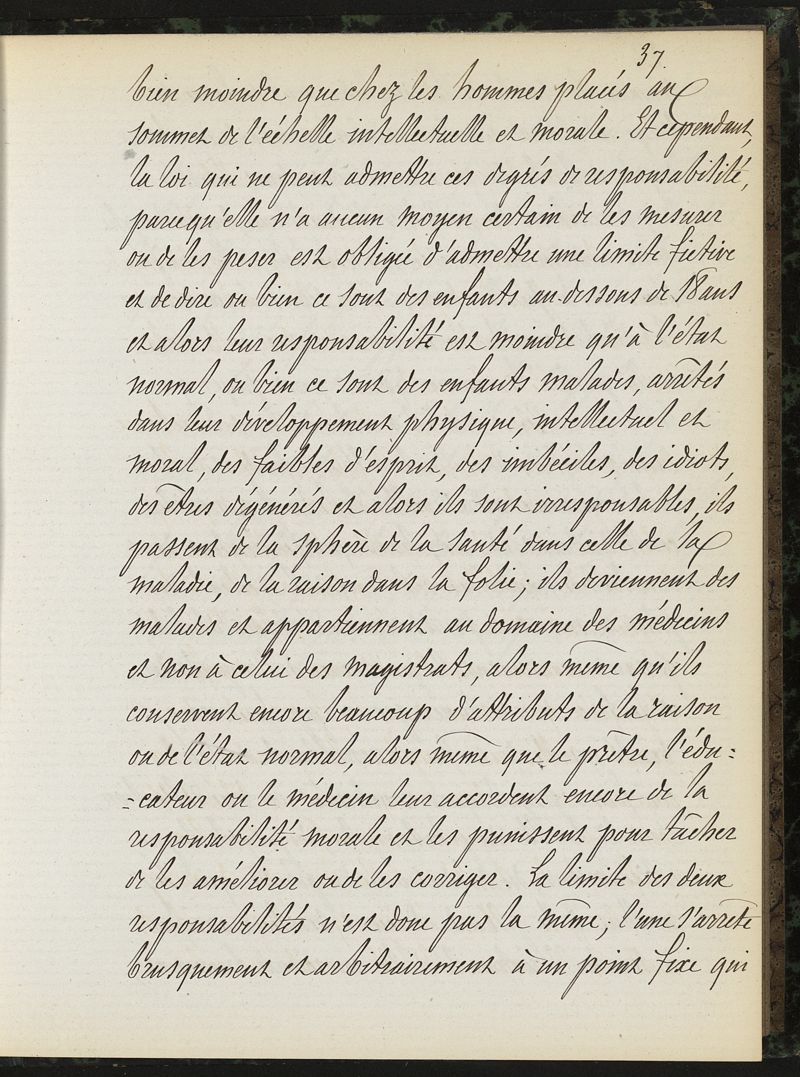 37
bien moindre que chez les hommes placés au
sommet de l'échelle intellectuelle et morale. Et cependant,
la loi qui ne peut admettre ces degrés de responsabilité,
parcequ'elle n'a aucun moyen certain de les mesurer
ou de les peser est obligée d'admettre une limite fictive
et de dire ou bien ce sont des enfants au-dessous de 18 ans
et alors leur responsabilité est moindre qu'à l'état
normal, ou bien ce sont des enfants malades, arrêtés
dans leur développement physique, intellectuel et
moral, des faibles d'esprit, des imbéciles, des idiots,
des êtres dégénérés et alors ils sont irresponsables, ils
passent de la sphère de la santé dans celle de la
maladie, de la raison dans la folie; ils deviennent des
malades et appartiennent au domaine des médecins
et non à celui des magistrats, alors même qu'ils
conservent encore beaucoup d'attributs de la raison
ou de l'état normal, alors même que le prêtre, l'édu=
=cateur ou le médecin leur accordent encore de la
responsabilité morale et les punissent pour tâcher
de les améliorer ou de les corriger. La limite des deux
responsabilités n'est donc pas la même; l'une s'arrête
brusquement et arbitrairement à un point fixe qui